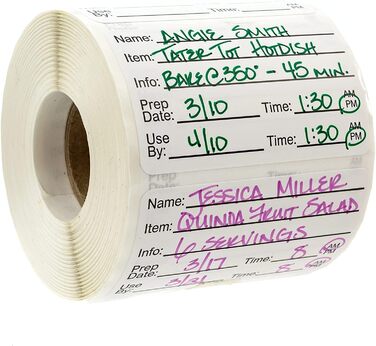 Time: AM PM
Name: ANGIE SMITH
Item: TATER TOT HOTDISH
Info: BAKE @ 350° - 45 MIN.
Prep Date: 3/10 Time: 1:30 AM PM
Use By: 4/10 Time: 1:30 AM PM
Name: JESSICA MILLER
Item: QUINOA FRUIT SALAD
Info: 6 SERVINGS
Prep Date: 3/17 Time: 8 AM PM
Use By: 3/31 Time: 8 AM PM